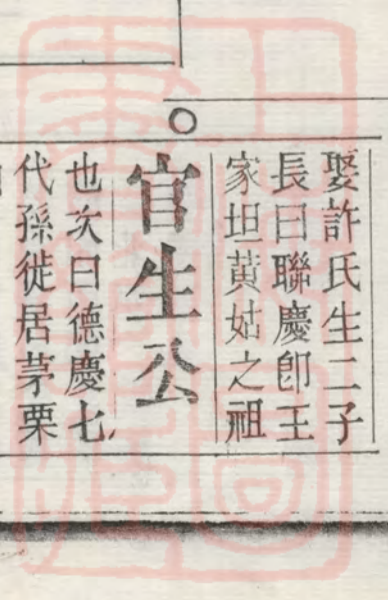 娶許氏生二子
長曰聯慶卽王
家坦黃姑之祖
官生公
也次曰德慶七
代孫徙居茅栗